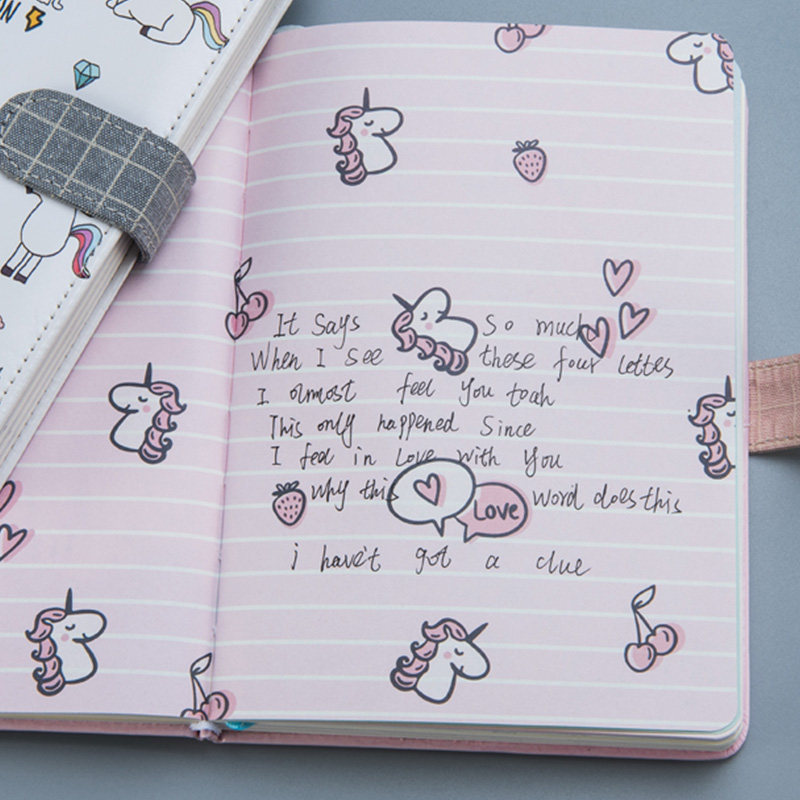 It Says So much
When I see these four lettes
I olmost feel you toah
This only happened Since
I feel in Love with you
why this Love word does this
i have't got a clue